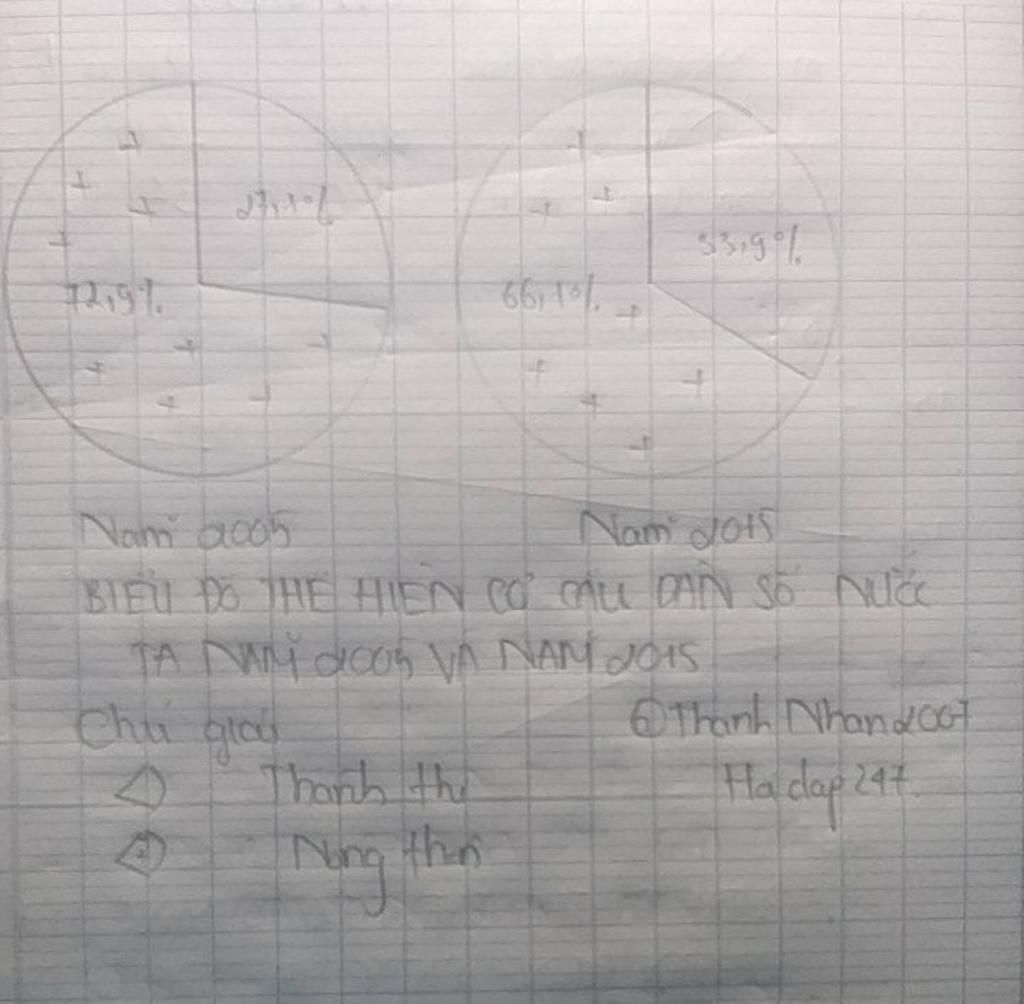 27,1%
72,9%
33,9%
66,1%
Năm 2005 Năm 2015
BIỂU ĐỒ THỂ HIỆN CƠ CẤU DÂN SỐ NƯỚC
TA NĂM 2005 VÀ NĂM 2015
Chú giải
©Thanh Nhan2007
Thành thị
Hadap247
Nông thôn